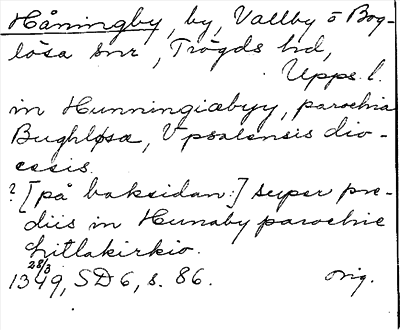 Håningby, by, Vallby o Bog-
lösa snr, Trögds hd,
Upps. l.
in Hunningiæbyy, parochia
Bughløsæ, Vpsalensis dio-
cesis.
? [på baksidan:] super pre-
diis in Hunaby parochie
Litlakirkio.
28/3
1349, SD 6, s. 86. orig.